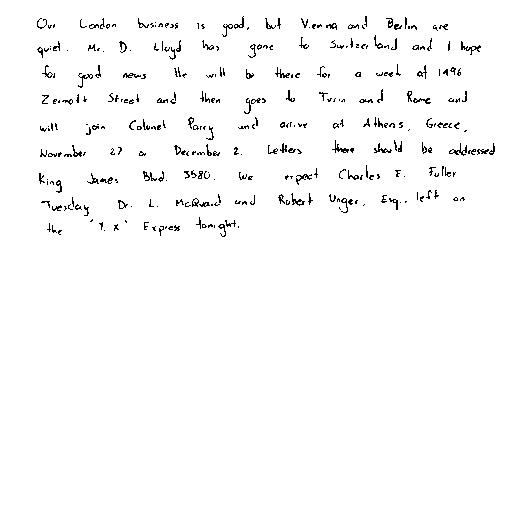 Our London business is good, but Vienna and Berlin are
quiet. Mr. D. Lloyd has gone to Switzerland and I hope
for good news. He will be there for a week at 1496
Zermott Street and then goes to Turin and Rome and
will join Colonel Parry and arrive at Athens, Greece,
November 27 or December 2. Letters there should be addressed
King James Blvd. 3580. We expect Charles E. Fuller
Tuesday. Dr. L. McQuaid and Robert Unger, Esq., left on
the "Y. X" Express tonight.